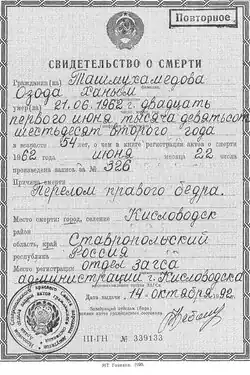 Повторное
СВИДЕТЕЛЬСТВО О СМЕРТИ
Гражданка(ин) Ташмухамедова
Озода Ханым
умер(ла) 21.06.1962 г. двадцать
первого июня тысяча девятьсот
шестьдесят второго года
в возрасте 54 лет, о чем в книге регистрации актов о смерти
1962 года июня месяца 22 числа
произведена запись за № 326
Причина смерти
Перелом правого бедра.
Место смерти: город, селение Кисловодск
район
область, край Ставропольский
республика Россия
Место регистрации отдел загса
администрации г. Кисловодска
Дата выдачи 14 октября 1992 г.
III-ГН № 339133
МТ Гознака. 1990.